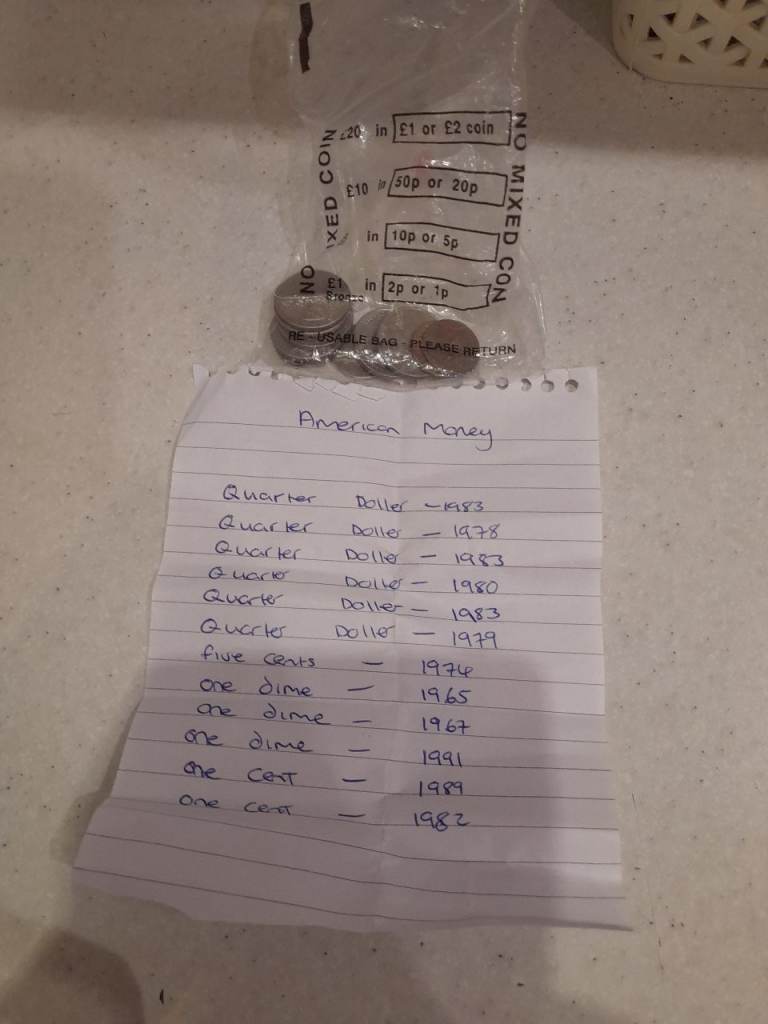 NO MIXED CON
IXED COIN
NO
£20 in £1 or £2 coin
£10 in 50p or 20p
in 10p or 5p
£1 in 2p or 1p
Bronze
RE - USABLE BAG - PLEASE RETURN
American Money
Quarter Doller - 1983
Quarter Doller - 1978
Quarter Doller - 1983
Quarter Doller - 1980
Quarter Doller - 1983
Quarter Doller - 1979
five cents - 1974
one dime - 1965
one dime - 1967
one dime - 1991
one cent - 1989
one cent - 1982